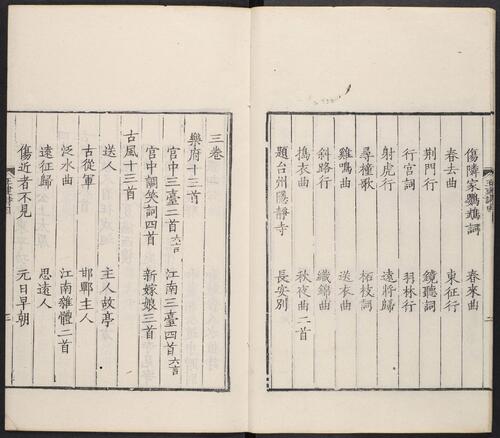 傷隣家鸚鵡詞 春來曲
春去曲 東征行
荆門行 鏡聽詞
行宮詞 羽林行
射虎行 遠將歸
尋橦歌 柘枝詞
雞鳴曲 送衣曲
斜路行 織錦曲
搗衣曲 秋夜曲二首
題台州隱靜寺 長安別
三卷
樂府十三首
宮中三臺二首六言 江南三臺四首六言
宮中調笑詞四首 新嫁娘三首
古風十三首
送人 主人故亭
古從軍 邯鄲主人
泛水曲 江南雜體二首
遠征歸 思遠人
傷近者不見 元日早朝